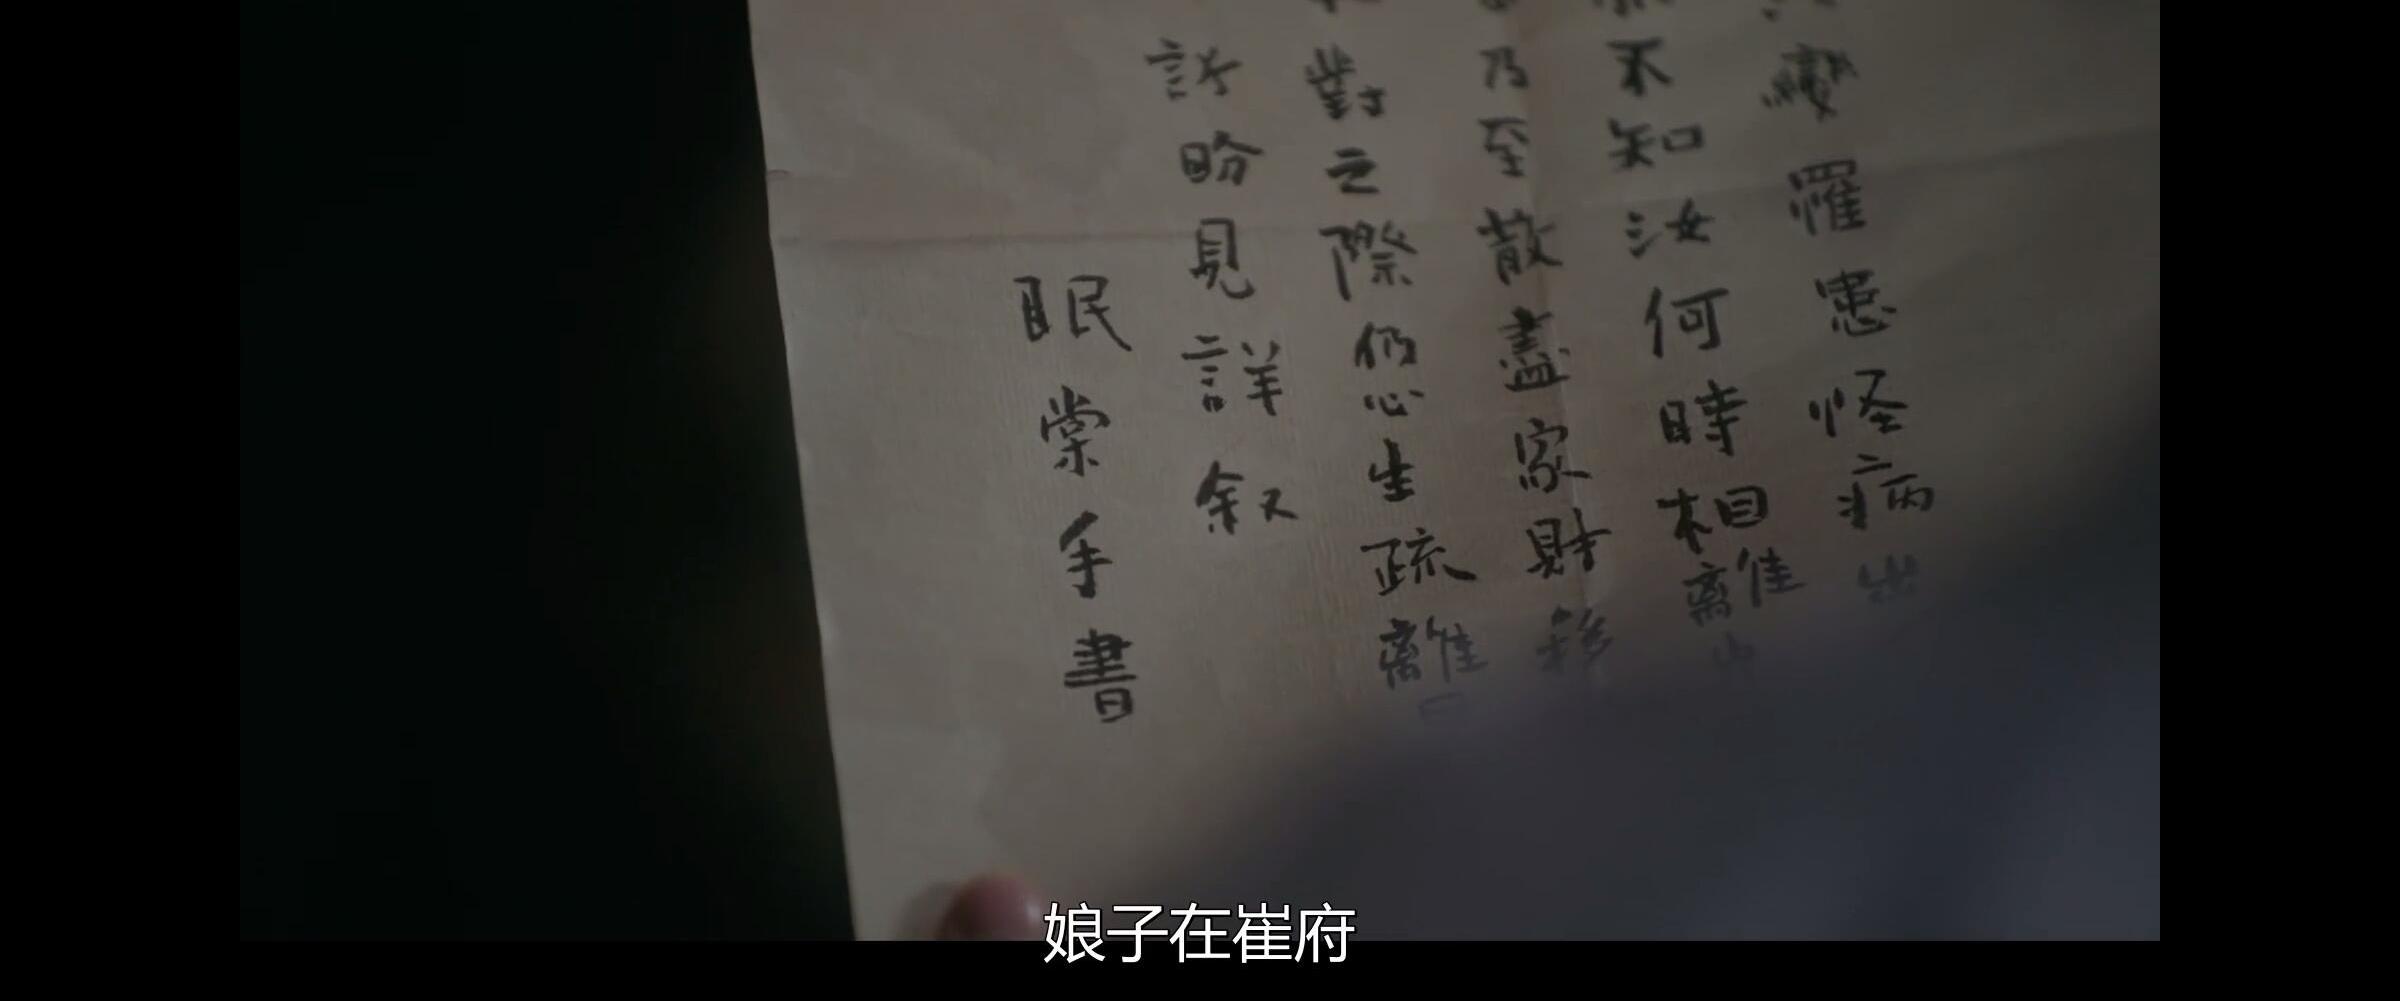 變罹患怪病出
不知汝何時相離
乃至散盡家財
對之際仍心生疏離
訴盼見詳叙
眠棠手書
娘子在崔府